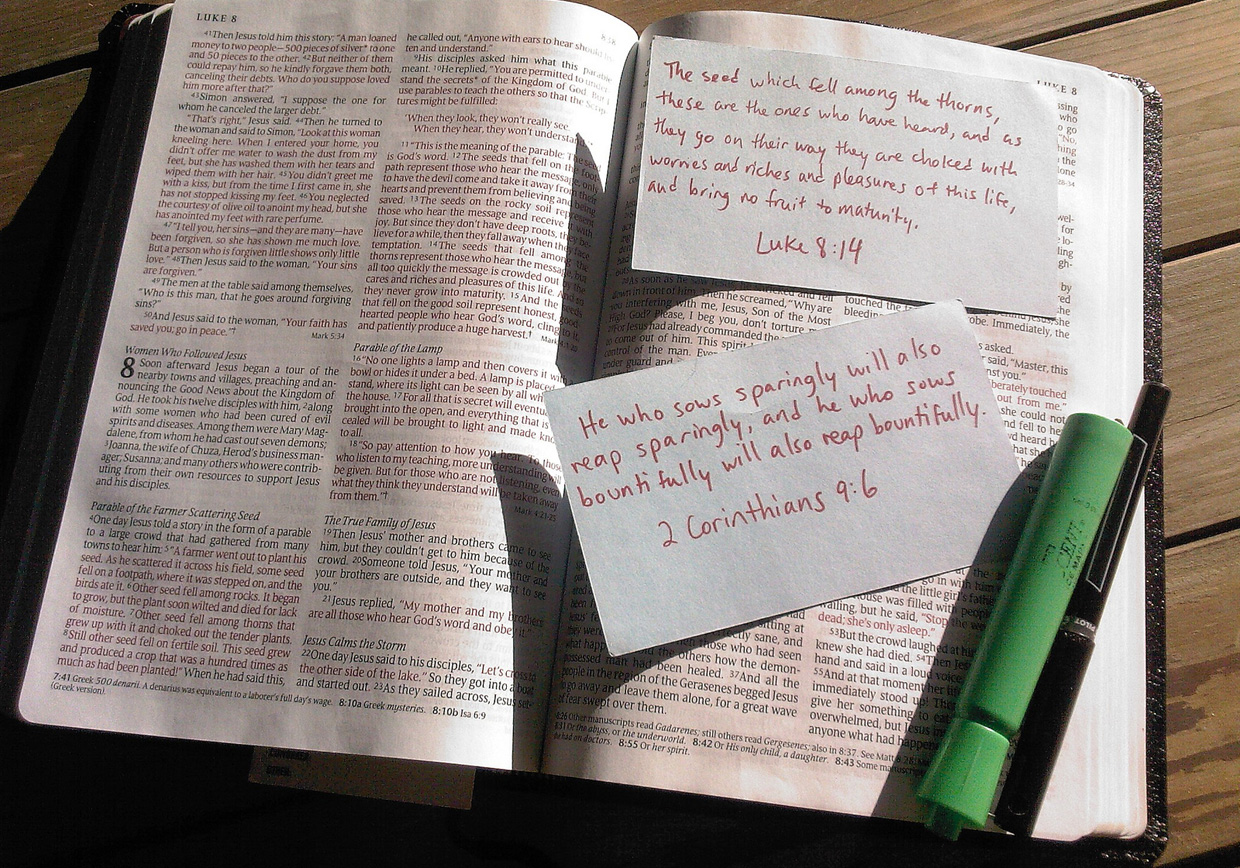 LUKE 8
41Then Jesus told him this story: "A man loaned
money to two people—500 pieces of silver* to one
and 50 pieces to the other. 42But neither of them
could repay him, so he kindly forgave them both,
canceling their debts. Who do you suppose loved
him more after that?"
43Simon answered, "I suppose the one for
whom he canceled the larger debt."
"That's right," Jesus said. 44Then he turned to
the woman and said to Simon, "Look at this woman
kneeling here. When I entered your home, you
didn't offer me water to wash the dust from my
feet, but she has washed them with her tears and
wiped them with her hair. 45You didn't greet me
with a kiss, but from the time I first came in, she
has not stopped kissing my feet. 46You neglected
the courtesy of olive oil to anoint my head, but she
has anointed my feet with rare perfume.
47"I tell you, her sins—and they are many—have
been forgiven, so she has shown me much love.
But a person who is forgiven little shows only little
love." 48Then Jesus said to the woman, "Your sins
are forgiven."
49The men at the table said among themselves,
"Who is this man, that he goes around forgiving
sins?"
50And Jesus said to the woman, "Your faith has
saved you; go in peace."†
Mark 5:34
Women Who Followed Jesus
8 Soon afterward Jesus began a tour of the
nearby towns and villages, preaching and an-
nouncing the Good News about the Kingdom of
God. He took his twelve disciples with him, 2along
with some women who had been cured of evil
spirits and diseases. Among them were Mary Mag-
dalene, from whom he had cast out seven demons;
3Joanna, the wife of Chuza, Herod's business man-
ager; Susanna; and many others who were contrib-
uting from their own resources to support Jesus
and his disciples.
Parable of the Farmer Scattering Seed
4One day Jesus told a story in the form of a parable
to a large crowd that had gathered from many
towns to hear him: 5"A farmer went out to plant his
seed. As he scattered it across his field, some seed
fell on a footpath, where it was stepped on, and the
birds ate it. 6Other seed fell among rocks. It began
to grow, but the plant soon wilted and died for lack
of moisture. 7Other seed fell among thorns that
grew up with it and choked out the tender plants.
8Still other seed fell on fertile soil. This seed grew
and produced a crop that was a hundred times as
much as had been planted!" When he had said this,
he called out, "Anyone with ears to hear should
ten and understand."
9His disciples asked him what this parable
meant. 10He replied, "You are permitted to under-
stand the secrets* of the Kingdom of God. But I
use parables to teach the others so that the Scrip-
tures might be fulfilled:
'When they look, they won't really see.
When they hear, they won't understand.'
11"This is the meaning of the parable: The seed
is God's word. 12The seeds that fell on the foot
path represent those who hear the message, only
to have the devil come and take it away from their
hearts and prevent them from believing and being
saved. 13The seeds on the rocky soil represent
those who hear the message and receive it with
joy. But since they don't have deep roots, they be-
lieve for a while, then they fall away when they face
temptation. 14The seeds that fell among the
thorns represent those who hear the message, but
all too quickly the message is crowded out by the
cares and riches and pleasures of this life. And so
they never grow into maturity. 15And the seeds
that fell on the good soil represent honest, good-
hearted people who hear God's word, cling to it,
and patiently produce a huge harvest.†
Mark 4:1-20
Parable of the Lamp
16"No one lights a lamp and then covers it with
bowl or hides it under a bed. A lamp is placed
stand, where its light can be seen by all who
the house. 17For all that is secret will eventually
brought into the open, and everything that is
cealed will be brought to light and made known
to all.
18"So pay attention to how you hear. To those
who listen to my teaching, more understanding will
be given. But for those who are not listening, even
what they think they understand will be taken away
from them."†
Mark 4:21-25
The True Family of Jesus
19Then Jesus' mother and brothers came to see
him, but they couldn't get to him because of the
crowd. 20Someone told Jesus, "Your mother and
your brothers are outside, and they want to see
you."
21Jesus replied, "My mother and my brothers
are all those who hear God's word and obey it."
Jesus Calms the Storm
22One day Jesus said to his disciples, "Let's cross to
the other side of the lake." So they got into a boat
and started out. 23As they sailed across, Jesus set-
7:41 Greek 500 denarii. A denarius was equivalent to a laborer's full day's wage. 8:10a Greek mysteries. 8:10b Isa 6:9
(Greek version).
LUKE 8
The seed which fell among the thorns,
these are the ones who have heard, and as
they go on their way they are choked with
worries and riches and pleasures of this life,
and bring no fruit to maturity.
Luke 8:14
As soon as he saw
down in front of him. Then he screamed, "Why are
you interfering with me, Jesus, Son of the Most
High God? Please, I beg you, don't torture
For Jesus had already commanded the
to come out of him. This spirit
control of the man.
under guard and
touched the
bleeding
robe. Immediately, the
asked.
said, "Master, this
deliberately touched
out from me."
she could not
He who sows sparingly will also
reap sparingly, and he who sows
bountifully will also reap bountifully.
2 Corinthians 9:6
sane, and
those who had seen
the others how the demon-
possessed man had been healed. 37And all the
people in the region of the Gerasenes begged Jesus
to go away and leave them alone, for a great wave
of fear swept over them.
go in with him
the little girl's father
house was filled with people
wailing, but he said, "Stop the
dead; she's only asleep."
53But the crowd laughed at him
knew she had died. 54Then Jesus
hand and said in a loud voice
55And at that moment her life
immediately stood up! Then
give her something to eat
overwhelmed, but Jesus
anyone what had happened
8:26 Other manuscripts read Gadarenes; still others read Gergesenes; also in 8:37. See Matt 8:28.
8:31 Or the abyss, or the underworld. 8:42 Or His only child, a daughter. 8:43 Some manuscripts
he had on doctors. 8:55 Or her spirit.
PILOT